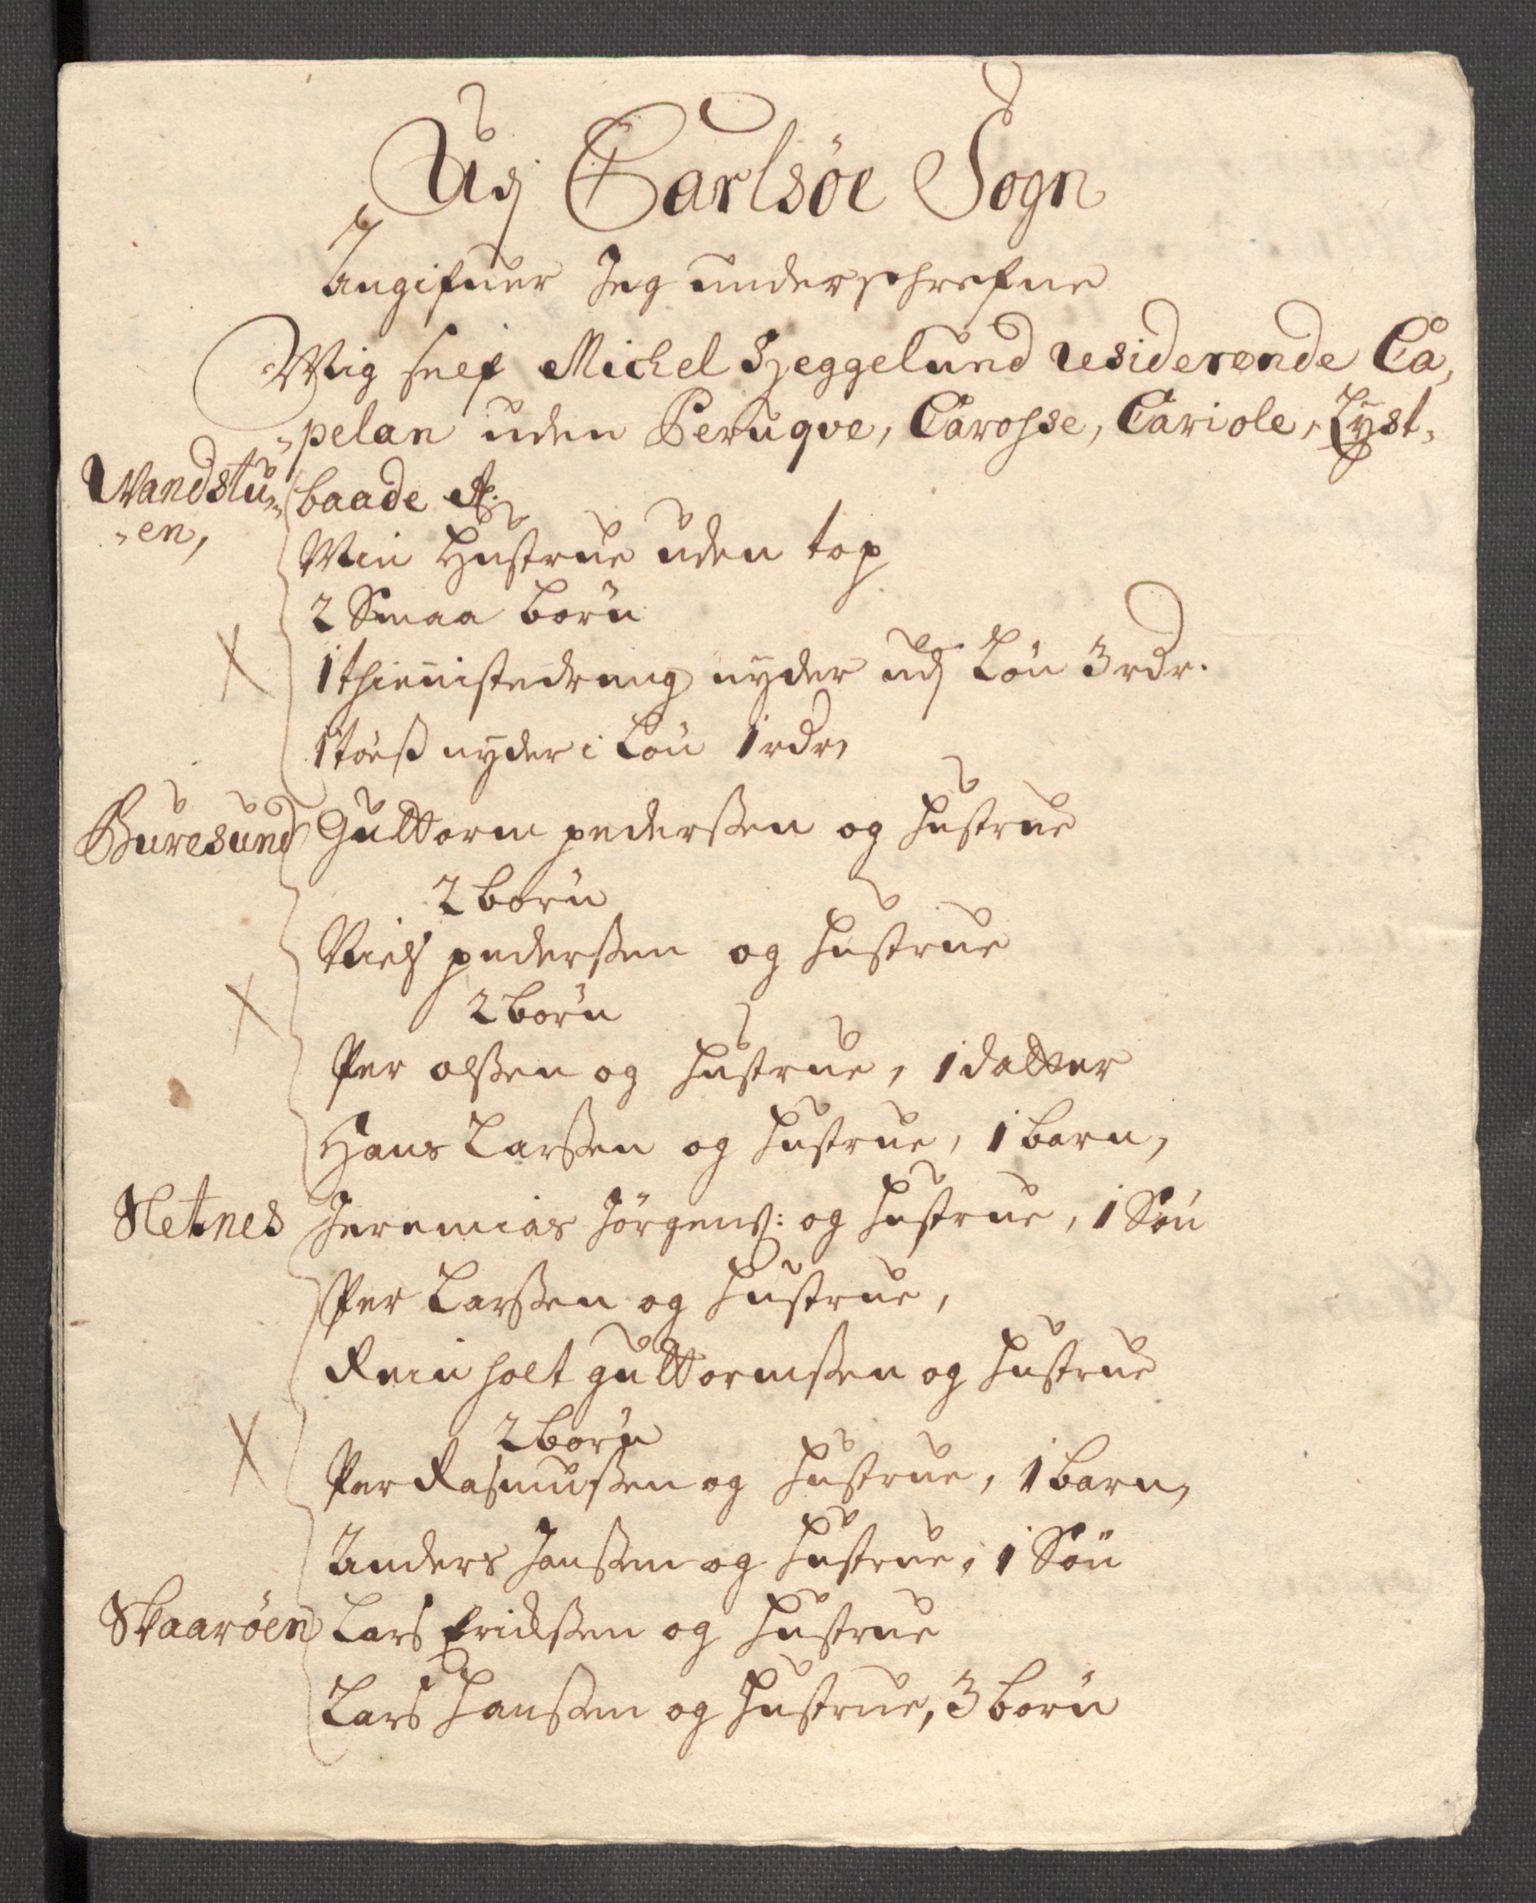 Udj Carlsöe Sogn
Angifuer Jeg underschrefne
Mig self Michel Heggelund residerende Ca,
„pelan uden Peruqve, Carosse, Cariole, Lyst„
Wandstu„ baade etc.
„en,
Min Hustrue uden top
2 Smaa börn
1 thienistedreng nyder udj Lön 3 rdr.
1 töeß nyder i Lön 1 rdr,
Buresund Guttorm pederßen og Hustrue
2 börn
Niels pederßen og Hustrue
2 börn
Per olßen og Hustrue, 1 datter
Hans Larßen og Hustrue, 1 barn,
Sletnes Jeremias Jörgens: og Hustrue, 1 Sön
Per Larßen og Hustrue,
Rein holt guttormßen og Hustrue
2 börn
Per Rasmußen og Hustrue, 1 barn,
Anders Janßen og Hustrue, 1 Sön
Skaaröen Lars Erichßen og Hustrue
Lars Hanßen og Hustrue, 3 börn